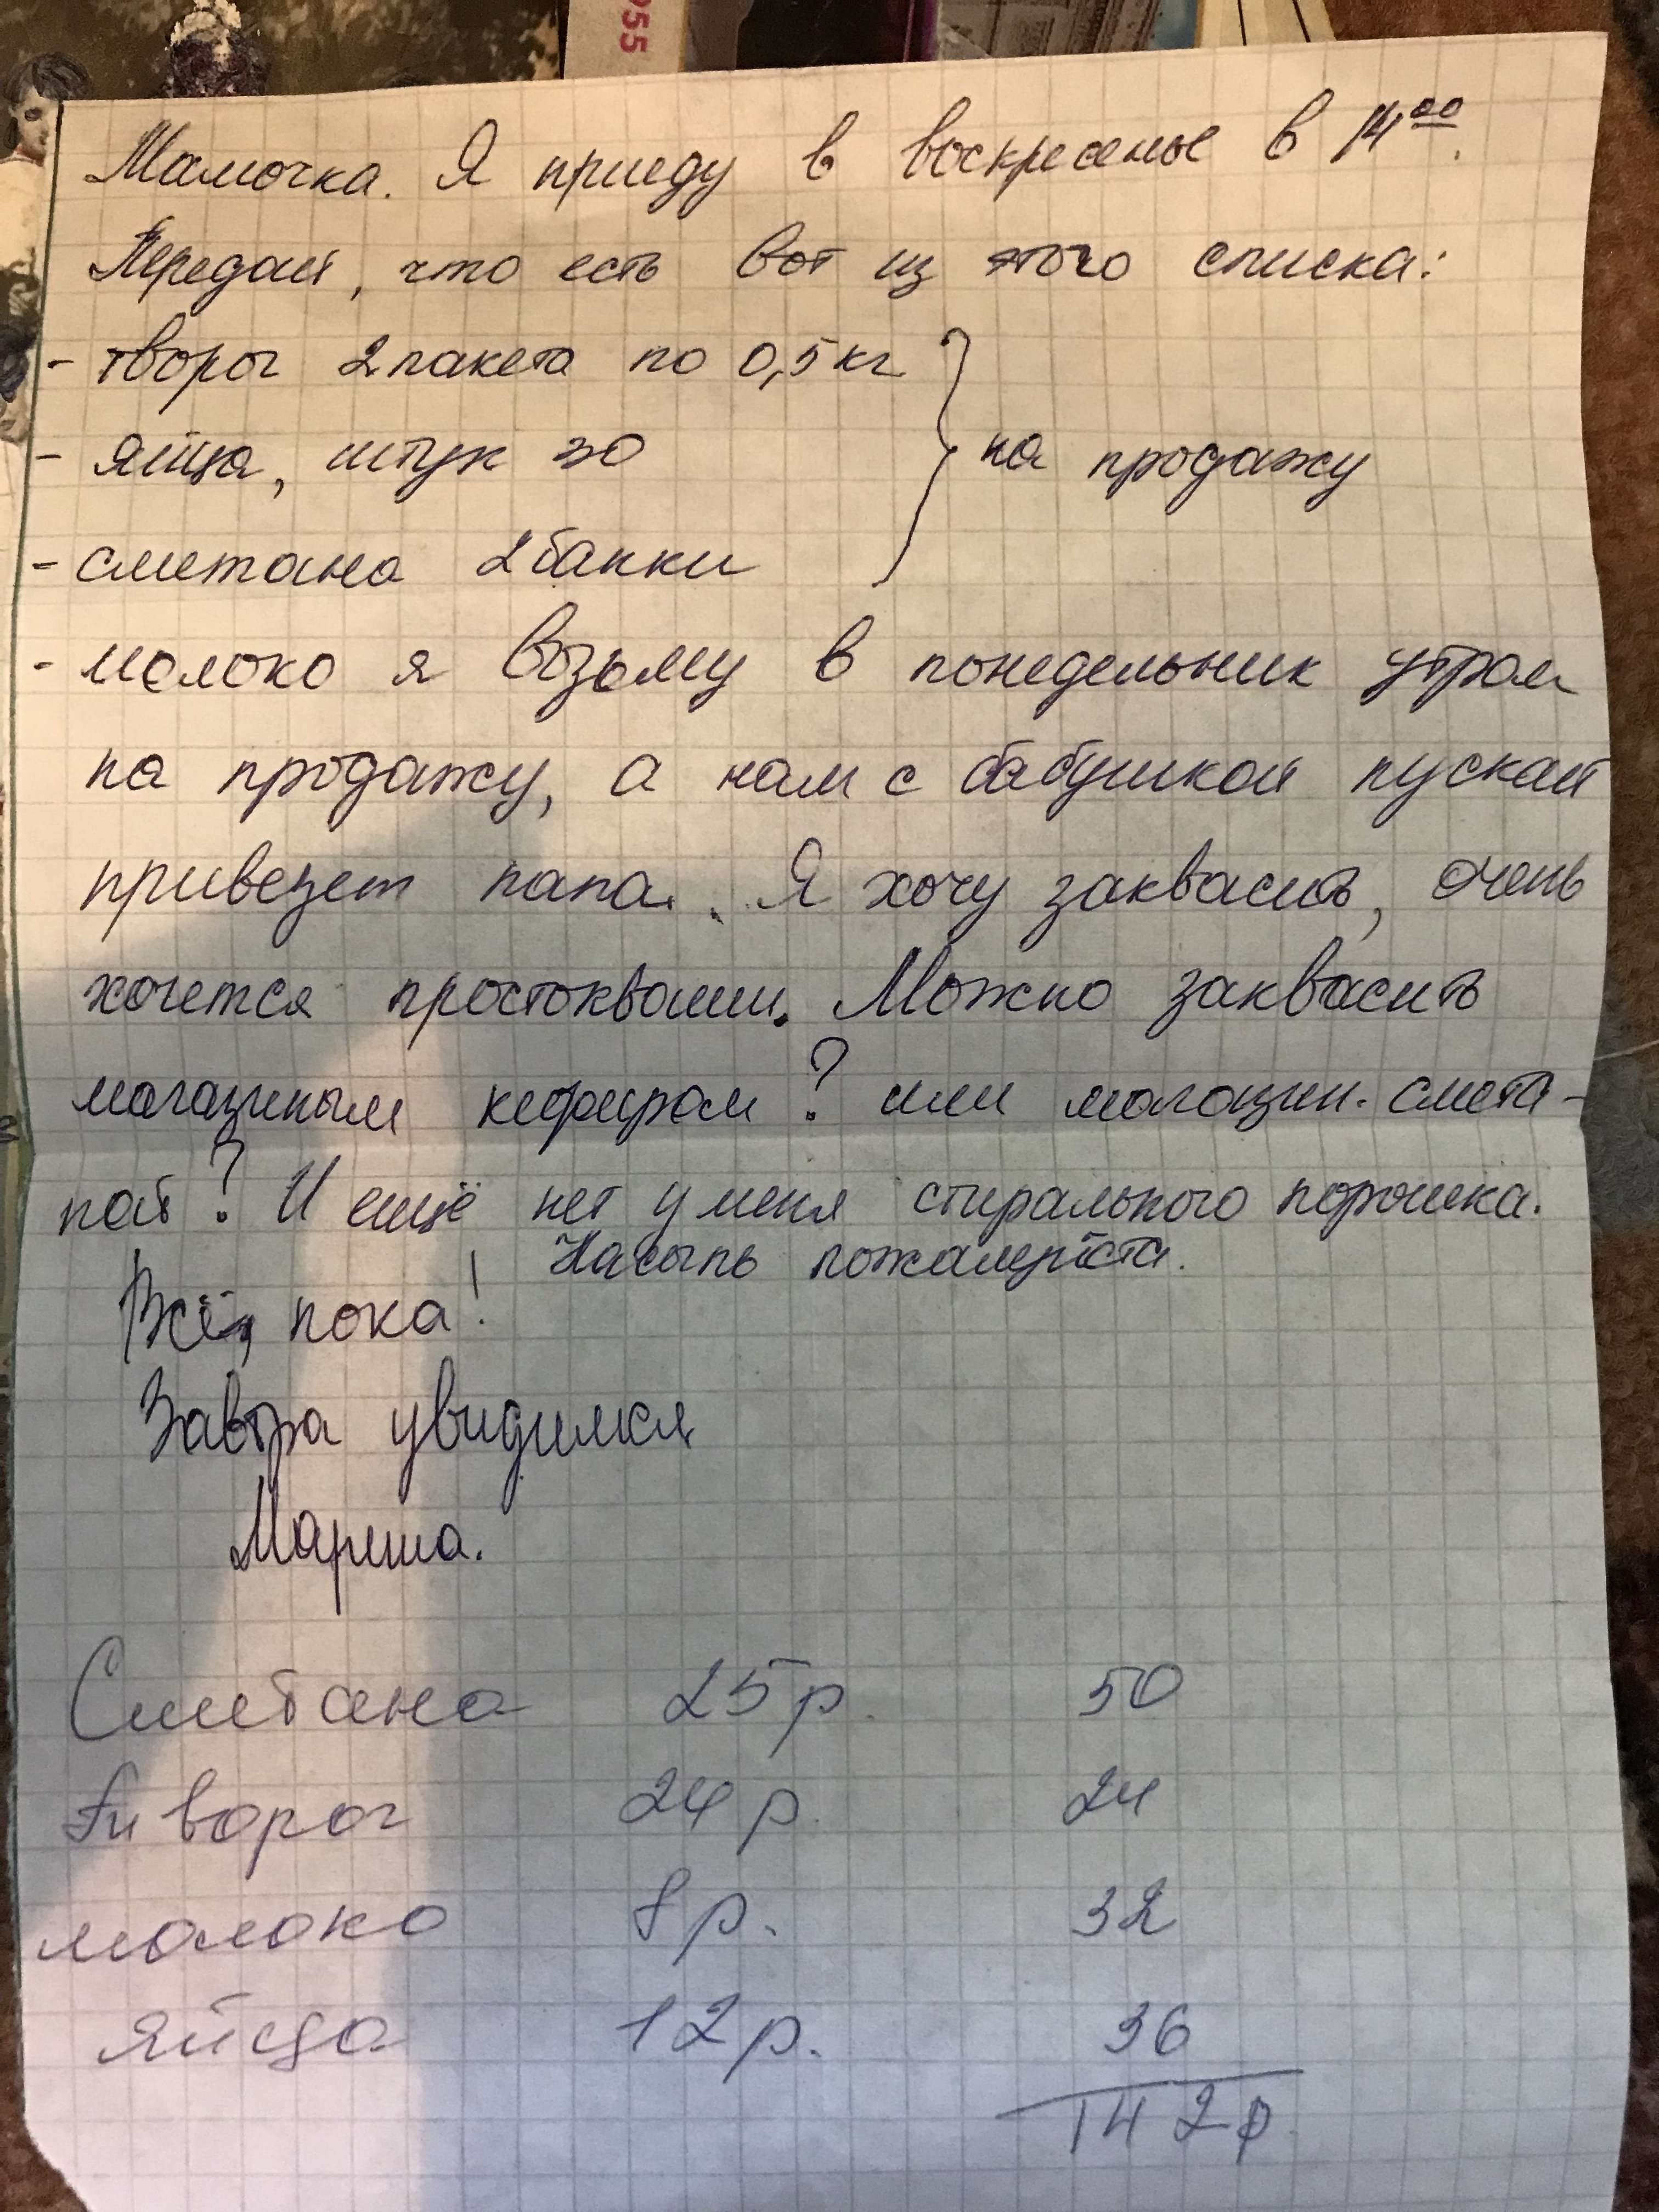 955
Мамочка. Я приеду в воскресенье в 14⁰⁰.
Передай, что есть вот из этого списка:
- творог 2 пакета по 0,5 кг
- яйца, штук 30
на продажу
- сметана 2 банки
- молоко я возьму в понедельник утром
на продажу, а нам с бабушкой пускай
привезет папа. Я хочу заквасить, очень
хочется простокваши. Можно заквасить
магазиным кефиром? или магазин. смета-
ной? И ещё нет у меня стирального порошка.
Насыпь пожалуйста.
Всё, пока!
Завтра увидимся
Мариша.
Сметана 25 р. 50
творог 24 р. 24
молоко 8 р. 32
яйца 12 р. 36
142 р